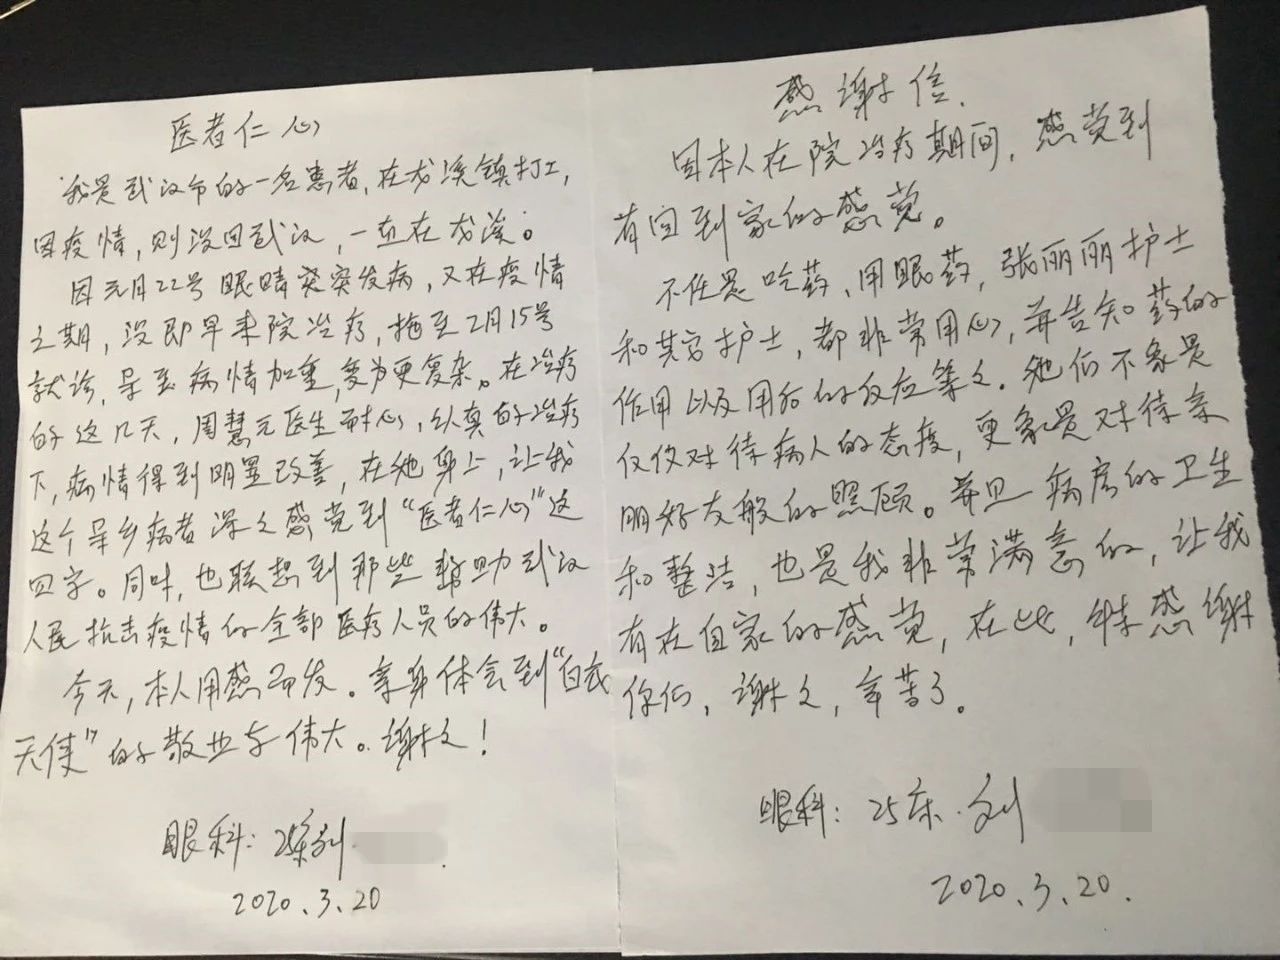 医者仁心
我是武汉市的一名患者,在龙溪镇打工,
因疫情,则没回武汉,一直在龙溪。
因元月22号眼睛突突发病,又在疫情
之期,没即早来院治疗,拖至2月15号
就诊,导至病情加重,变为更复杂。在治疗
的这几天,周慧元医生耐心,认真的治疗
下,病情得到明显改善,在他身上,让我
这个异乡病者深之感觉到“医者仁心”这
四字。同时,也联想到那些帮助武汉
人民抗击疫情的全部医疗人员的伟大。
今天,本人用感而发。亲身体会到“白衣
天使”的敬业与伟大。谢之!
眼科:25床刘
2020.3.20
感谢信.
因本人在院治疗期间,感觉到
有回到家的感觉。
不任是吃药、用眼药,张丽丽护士
和其它护士,都非常用心,并告知药的
作用以及用后的反应等之。他们不象是
仅仅对待病人的态度,更象是对待亲
朋好友般的照顾。并且病房的卫生
和整洁,也是我非常满意的,让我
有在自家的感觉,在此,特感谢
你们,谢之,辛苦了。
眼科:25床.刘
2020.3.20.